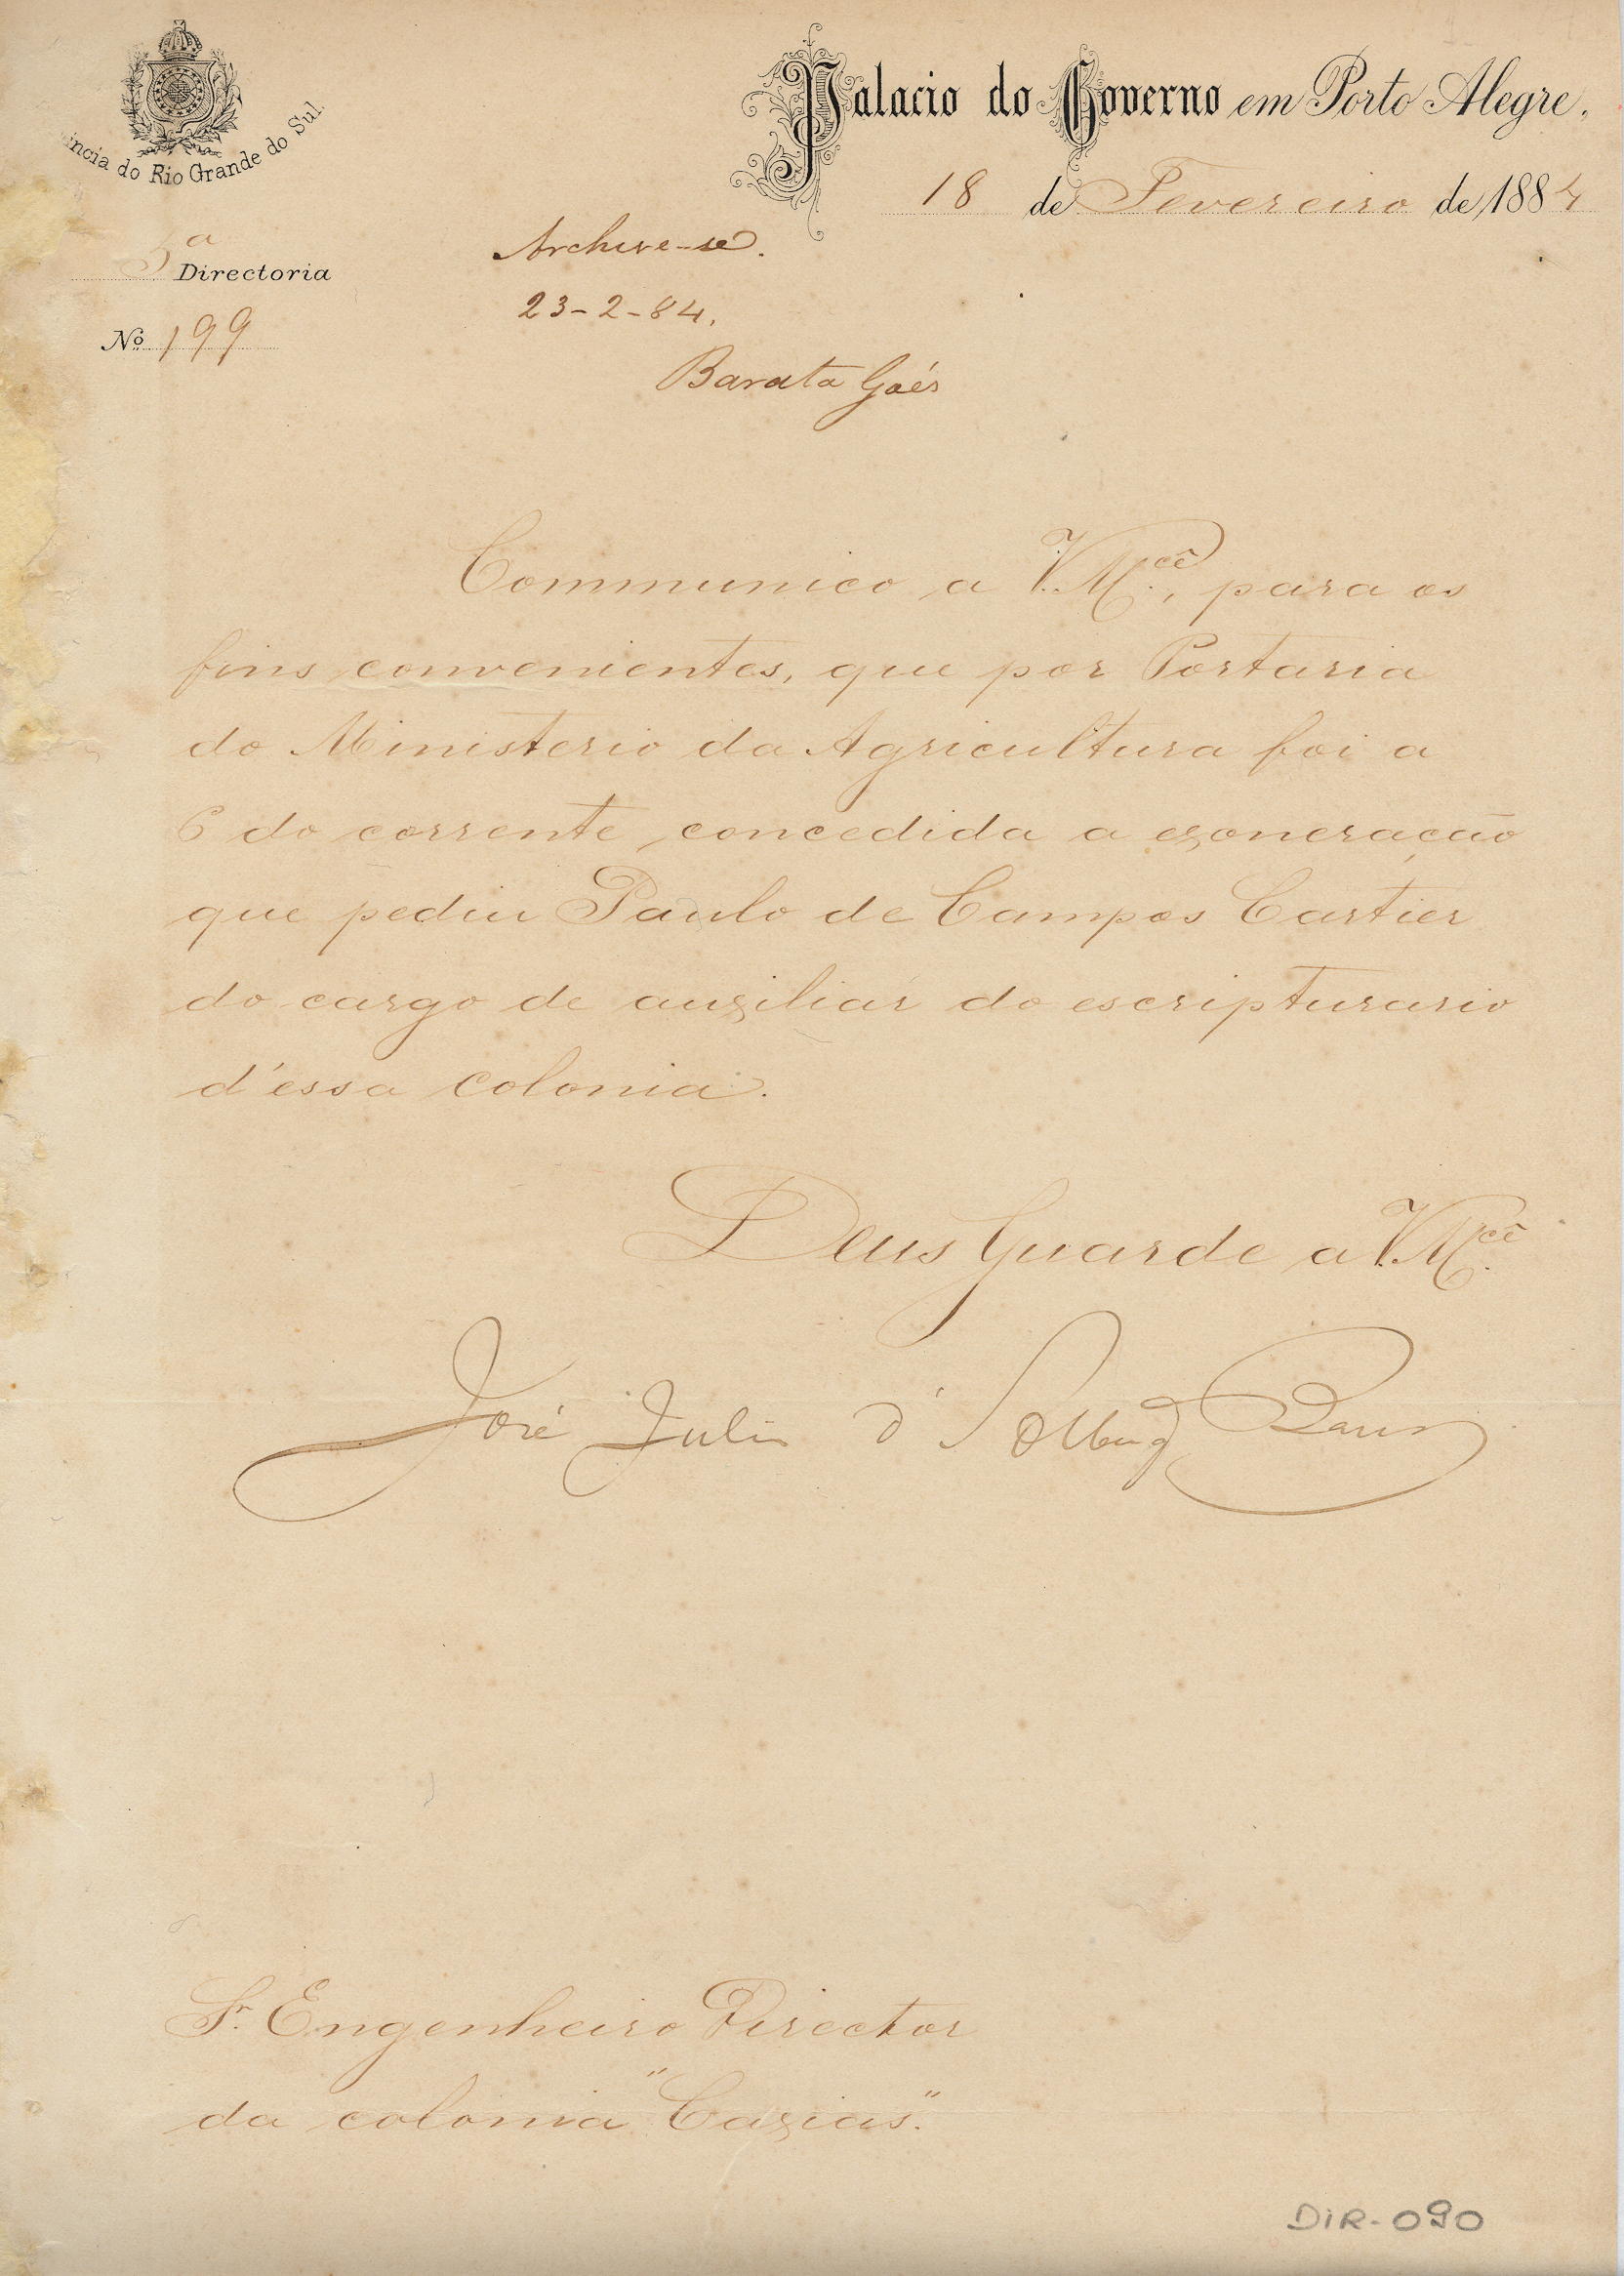 Palacio do Governo em Porto Alegre,
18 de Fevereiro de 1884
incia do Rio Grande do Sul
5ª Directoria
Nº 199
Archive-se.
23-2-84.
Barata Goés
Communico a V.M.cê, para os
fins convenientes, que por Portaria
do Ministerio da Agricultura foi a
6 do corrente, concedida a exoneração
que pediu Paulo de Campos Cartier
do cargo de auxiliar do escripturario
d'essa colonia.
Deus Guarde a V.M.cê
José Julio d'
Sr. Engenheiro Director
da colonia "Caxias".
DIR-090